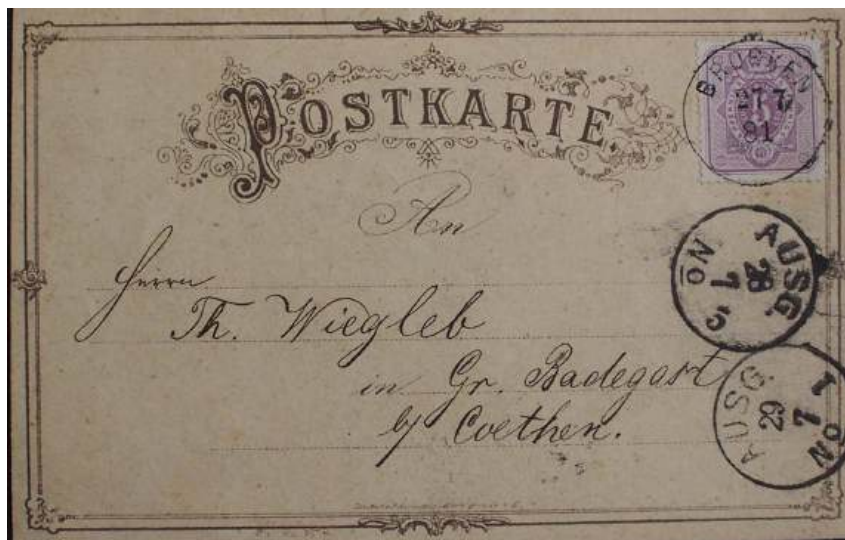 POSTKARTE.
BROCKEN
27 7
81
An
Herrn
Th. Wiegleb
in Gr. Badegast
b/ Coethen.
AUSG.
28
7
No 5
AUSG.
29
7
No 1